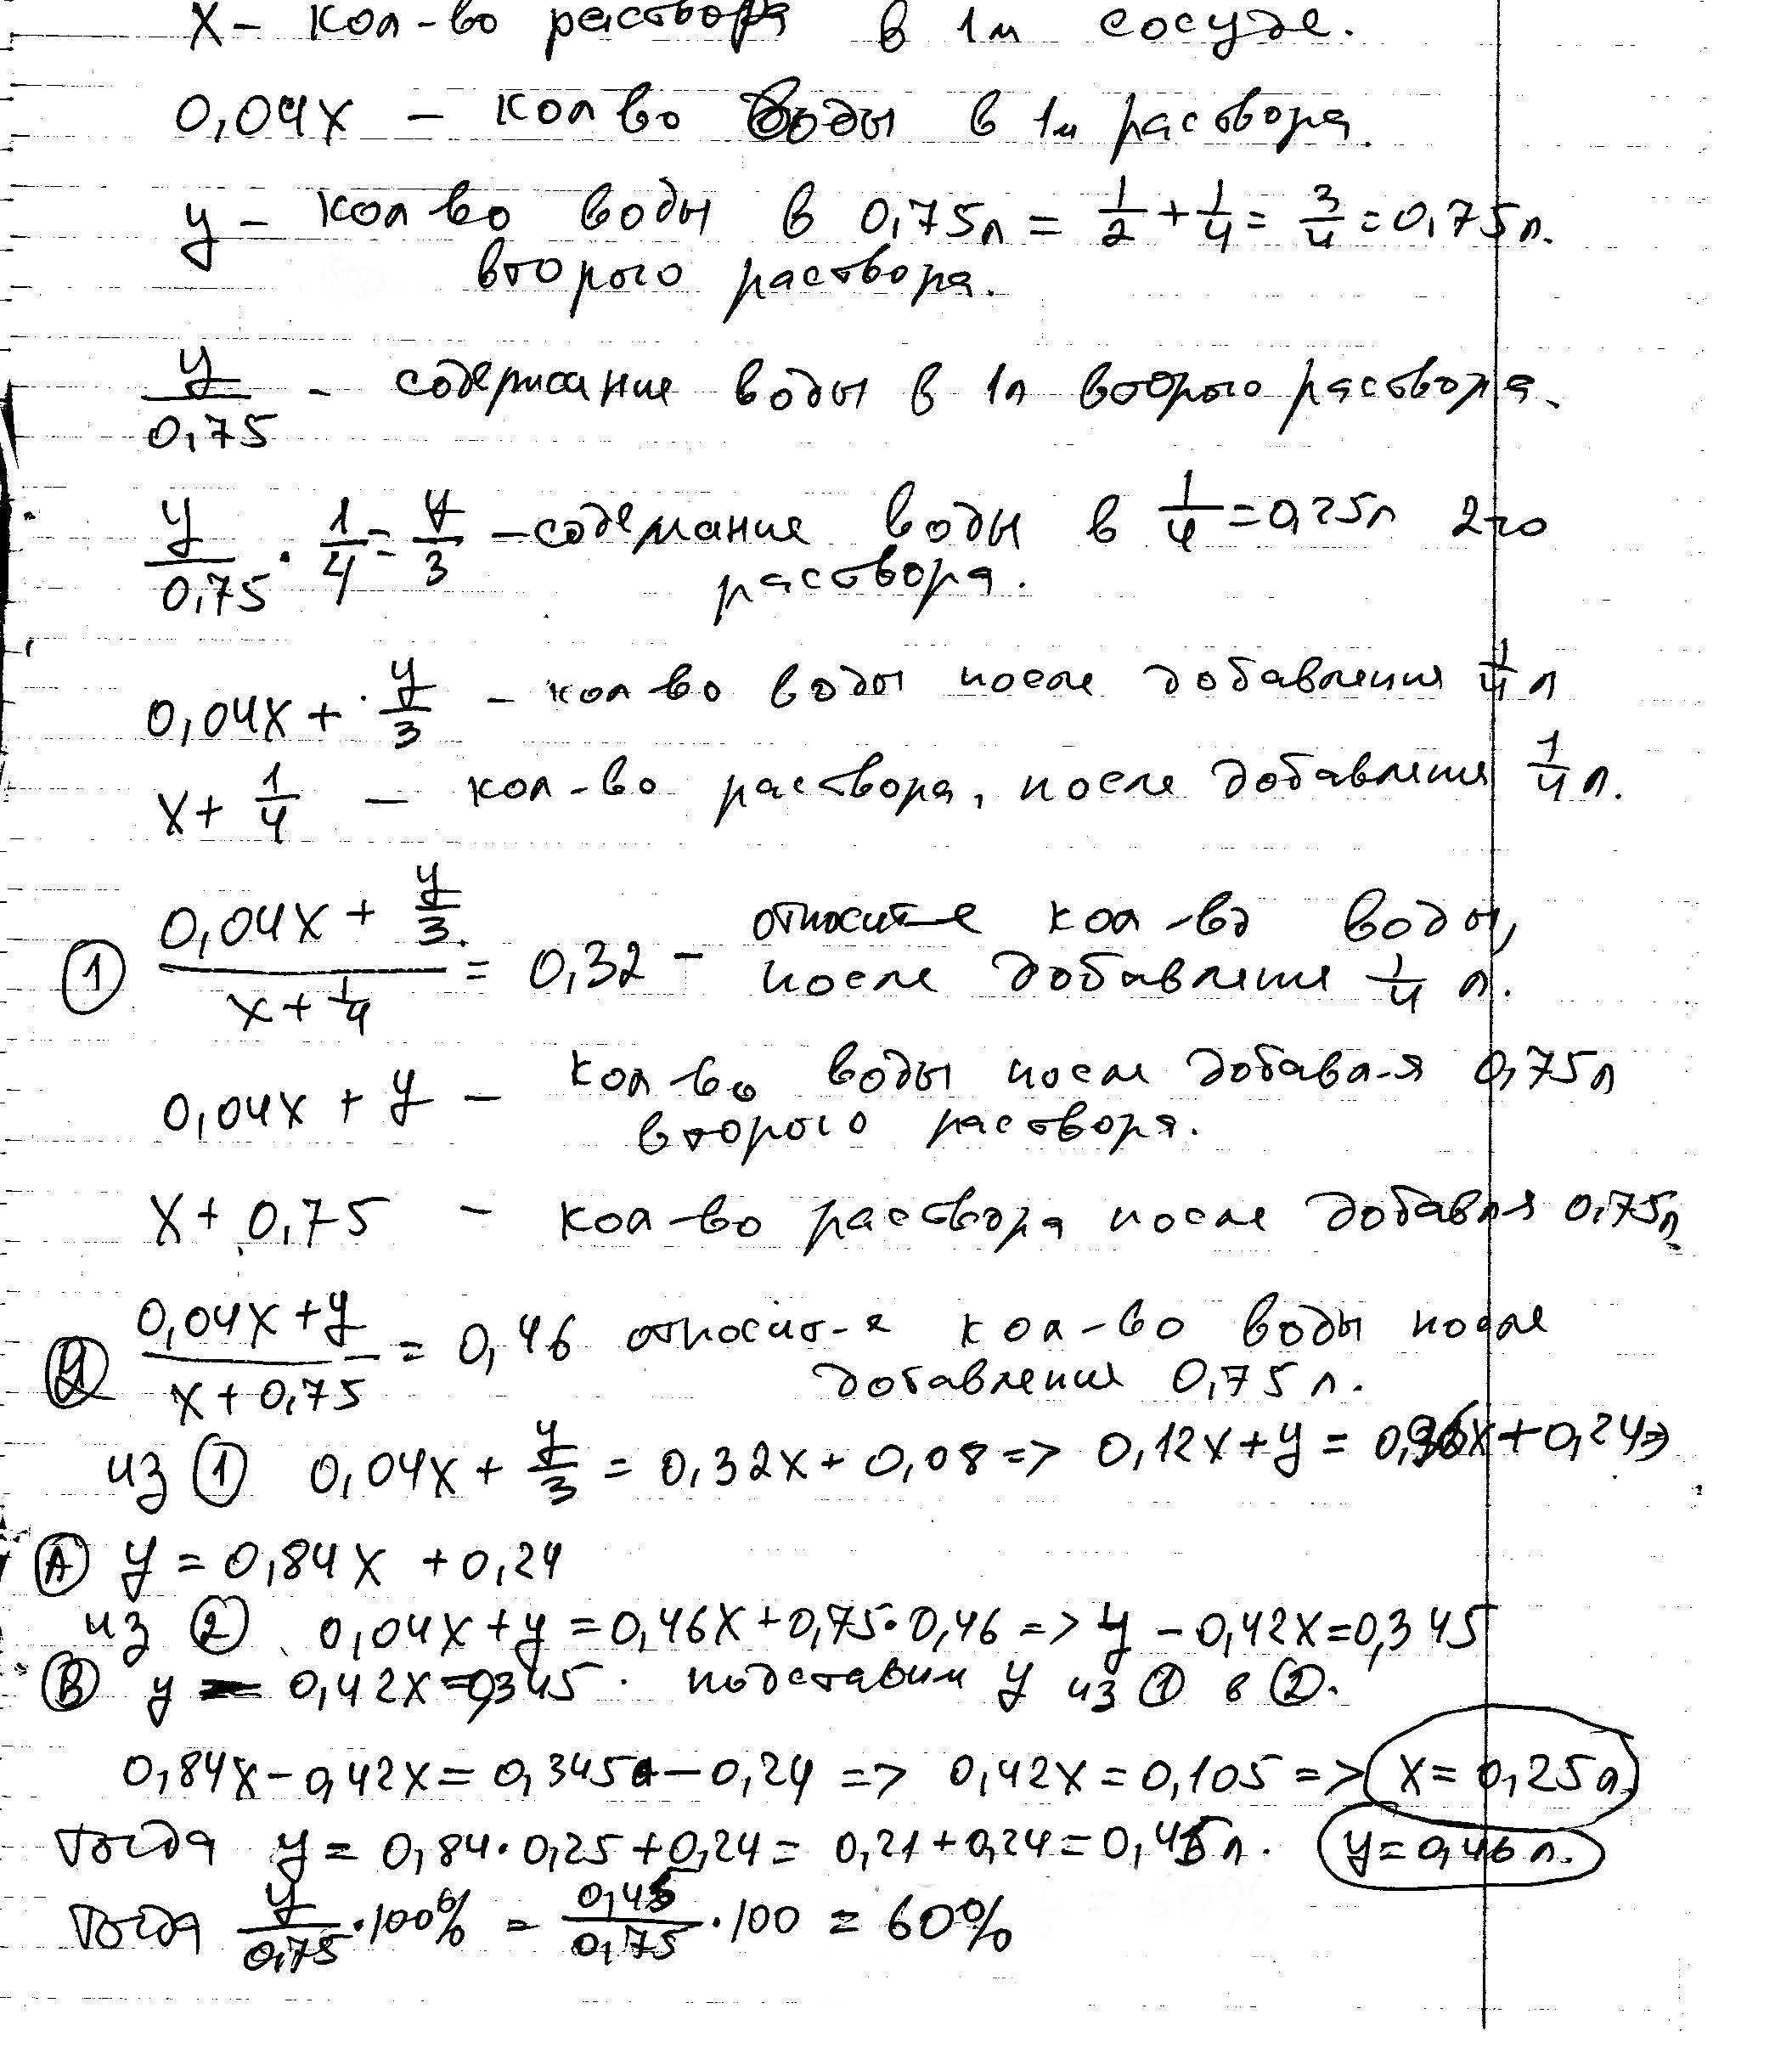 x - кол-во раствора в 1м сосуде.
0,04x - кол во воды в 1м раствора.
y - кол во воды в 0,75л = 1/2 + 1/4 = 3/4 = 0,75л.
второго раствора.
y/0,75 - содержание воды в 1л второго раствора.
y/0,75 · 1/4 = y/3 - содежание воды в 1/4 = 0,25л 2го
раствора.
0,04x + y/3 - кол во воды после добавления 1/4 л
x + 1/4 - кол-во раствора, после добавления 1/4 л.
① (0,04x + y/3)/(x + 1/4) = 0,32 - относит-е кол-во воды,
после добавления 1/4 л.
0,04x + y - кол-во воды после добавл-я 0,75л
второго раствора.
x + 0,75 - кол-во раствора после добавл-я 0,75л
② (0,04x + y)/(x + 0,75) = 0,46 относит-е кол-во воды после
добавления 0,75 л.
из ① 0,04x + y/3 = 0,32x + 0,08 => 0,12x + y = 0,96x + 0,24 =>
Ⓐ y = 0,84x + 0,24
из ② 0,04x + y = 0,46x + 0,75·0,46 => y - 0,42x = 0,345
Ⓑ y - 0,42x = 0,345. подставим y из ① в ②.
0,84x - 0,42x = 0,345 - 0,24 => 0,42x = 0,105 => x = 0,25л.
тогда y = 0,84·0,25 + 0,24 = 0,21 + 0,24 = 0,45л. y = 0,46 л.
тогда y/0,75 · 100% = 0,45/0,75 · 100 = 60%